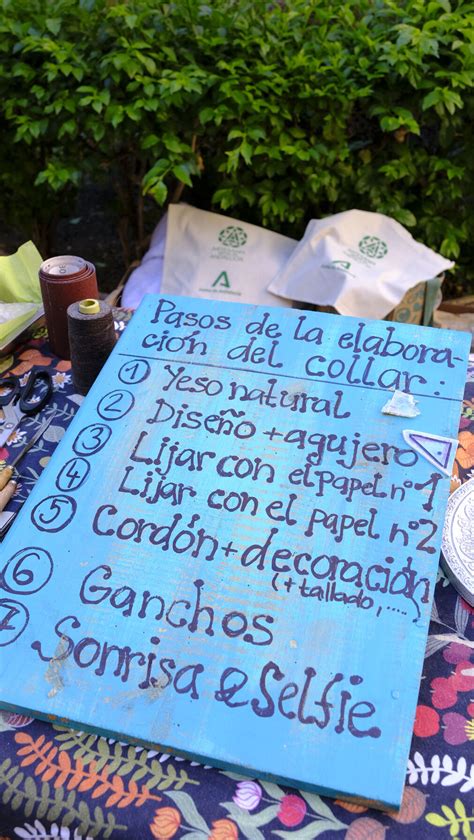 Pasos de la elabora-
ción del collar:
1 Yeso natural
2 Diseño + agujero
3 Lijar con el papel nº1
4 Lijar con el papel nº2
5 Cordón + decoración
(+ tallado, ....)
6 Ganchos
7 Sonrisa & Selfie